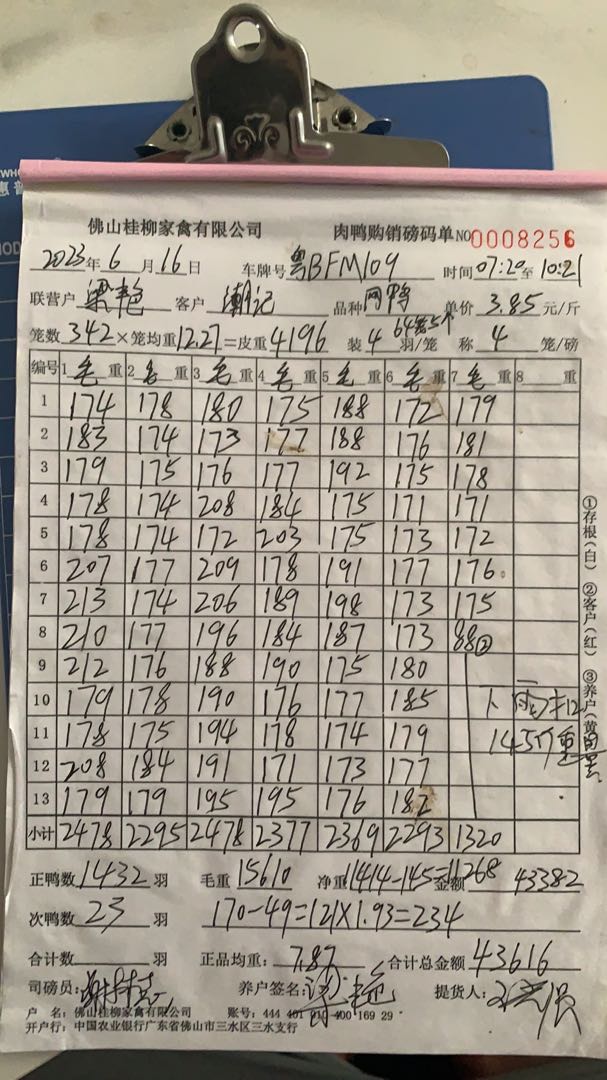 佛山桂柳家禽有限公司 肉鸭购销磅码单 NO 0008256
2023年6月16日 车牌号 粤BFM109 时间 07:20至10:21
联营户 梁艳 客户 潮记 品种 单价 3.85 元/斤
64笼5个
笼数 342 × 笼均重 12.27 = 皮重 4196 装 4 羽/笼 称 4 笼/磅
编号 1 毛 重 2 毛 重 3 毛 重 4 毛 重 5 毛 重 6 毛 重 7 毛 重 8 重
1 174 178 180 175 188 172 179
2 183 174 173 177 188 176 181
3 179 175 176 177 192 175 178
4 178 174 208 184 175 171 171
5 178 174 172 203 175 173 172
6 207 177 209 178 191 177 176
7 213 174 206 189 198 173 175
8 210 177 196 184 187 173 88②
9 212 176 188 190 175 180
10 179 178 190 176 177 185 下雨
11 178 175 194 178 174 179 145斤重
12 208 184 191 171 173 177
13 179 179 195 195 176 182
小计 2478 2295 2478 2377 2369 2293 1320
正鸭数 1432 羽 毛重 15610 净重 11414-145=11268 金额 43382
次鸭数 23 羽 170-49=121×1.93=234
合计数 羽 正品均重: 7.87 合计总金额 43616
司磅员: 养户签名: 梁艳 提货人:
户 名: 佛山桂柳家禽有限公司 账号: 444 401 010 400 169 29
开户行: 中国农业银行广东省佛山市三水区三水支行
①存根(白) ②客户(红) ③养户(黄)